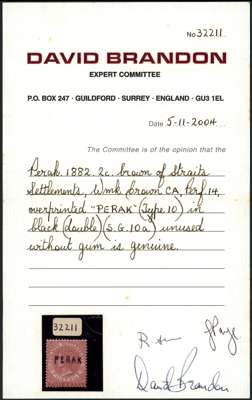 No 32211
DAVID BRANDON
EXPERT COMMITTEE
P.O. BOX 247 · GUILDFORD · SURREY · ENGLAND · GU3 1EL
Date 5-11-2004
The Committee is of the opinion that the
Perak. 1882. 2c. brown of Straits
Settlements, Wmk Crown CA, Perf 14,
overprinted "PERAK" (Type 10) in
black (double) (S.G. 10a) unused
without gum is genuine.
32211
PERAK
David Brandon